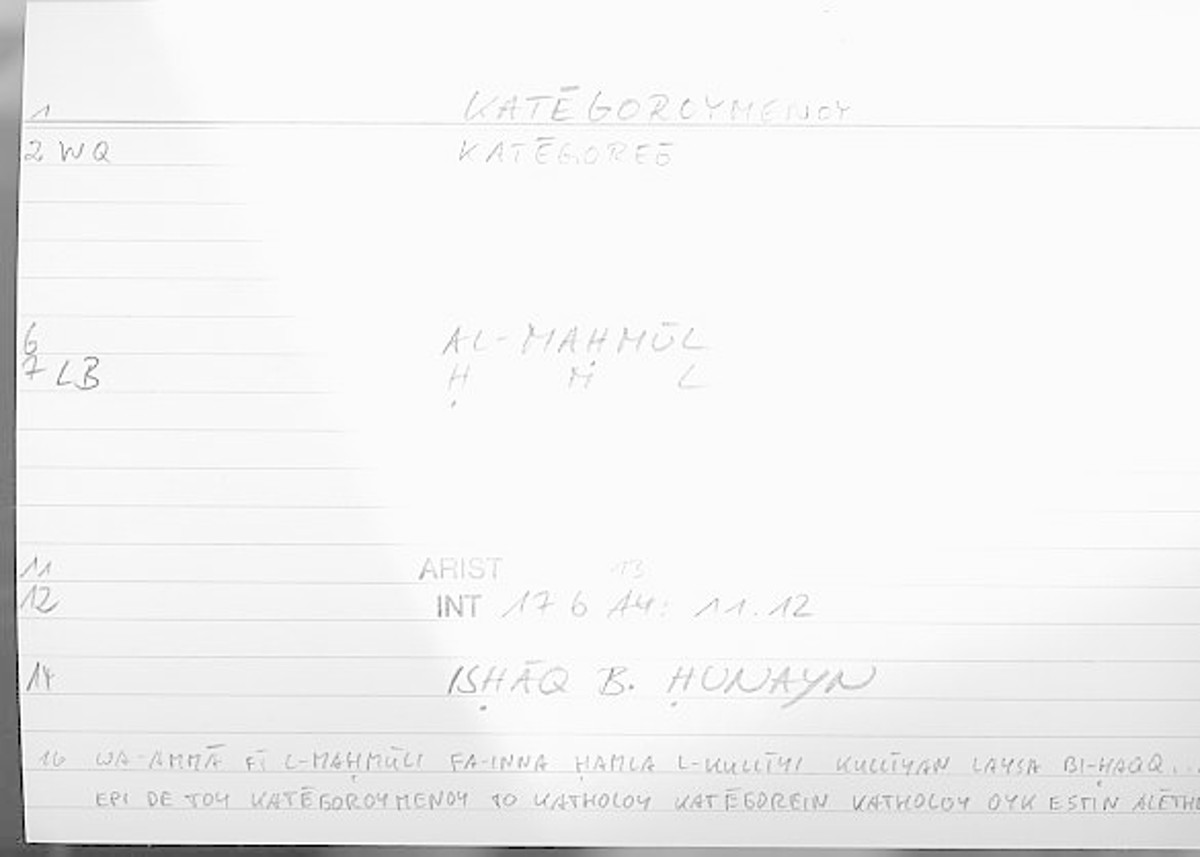 1 KATĒGOROYMENOY
2 WQ KATĒGOREŌ
6 AL-MAḤMŪL
7 LB Ḥ M L
11 ARIST 13
12 INT 17 b A4: 11.12
14 ISḤĀQ B. ḤUNAYN
16 WA-AMMĀ FĪ L-MAḤMŪLI FA-INNA ḤAMLA L-KULLĪYI KULLĪYAN LAYSA BI-ḤAQQ...
EPI DE TOY KATĒGOROYMENOY TO KATHOLOY KATĒGOREIN KATHOLOY OYK ESTIN ALĒTHE